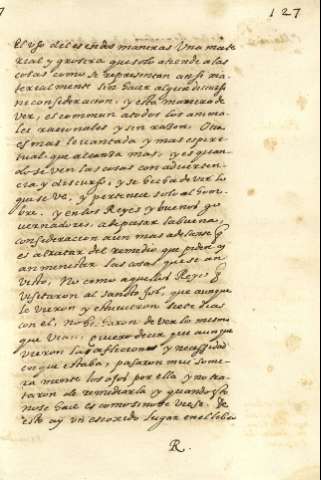 127
El uso del es en dos maneras Una mate
rial y grosera que solo atiende a las
cosas como se representan ansi ma
terialmente sin hacer algun discurso
ni consideracion, y esta manera de
ver, es commun a todos los anima
les racionales y sin rason. Otra
es mas levantada y mas espiri
tual que alcanza mas, y es quan
do se ven las cosas con advertен
cia y discurso, y se echa de ver lo
que se ve, y pertenece solo al hom
bre. y en los Reyes y buenos go
vernadores, a de pasar la buena,
consideracion aun mas adelante q
es a tratar del remedio que piden y
an menester las cosas que se an
visto, No como aquellos Reyes q
visitaron al sancto Job, que aunque
lo vieron y estuvieron siete dias
con el, no echaron de ver lo mesmo
que vian, quiero decir que aunque
vieron las aflicciones y necessidad
en que estaba, pasaron muy some
ramente los ojos por ella y no tra
taron de remediarla y quando esto
no se hace es como sino se viese. De
esto ay un escoxido lugar en el libro
R.